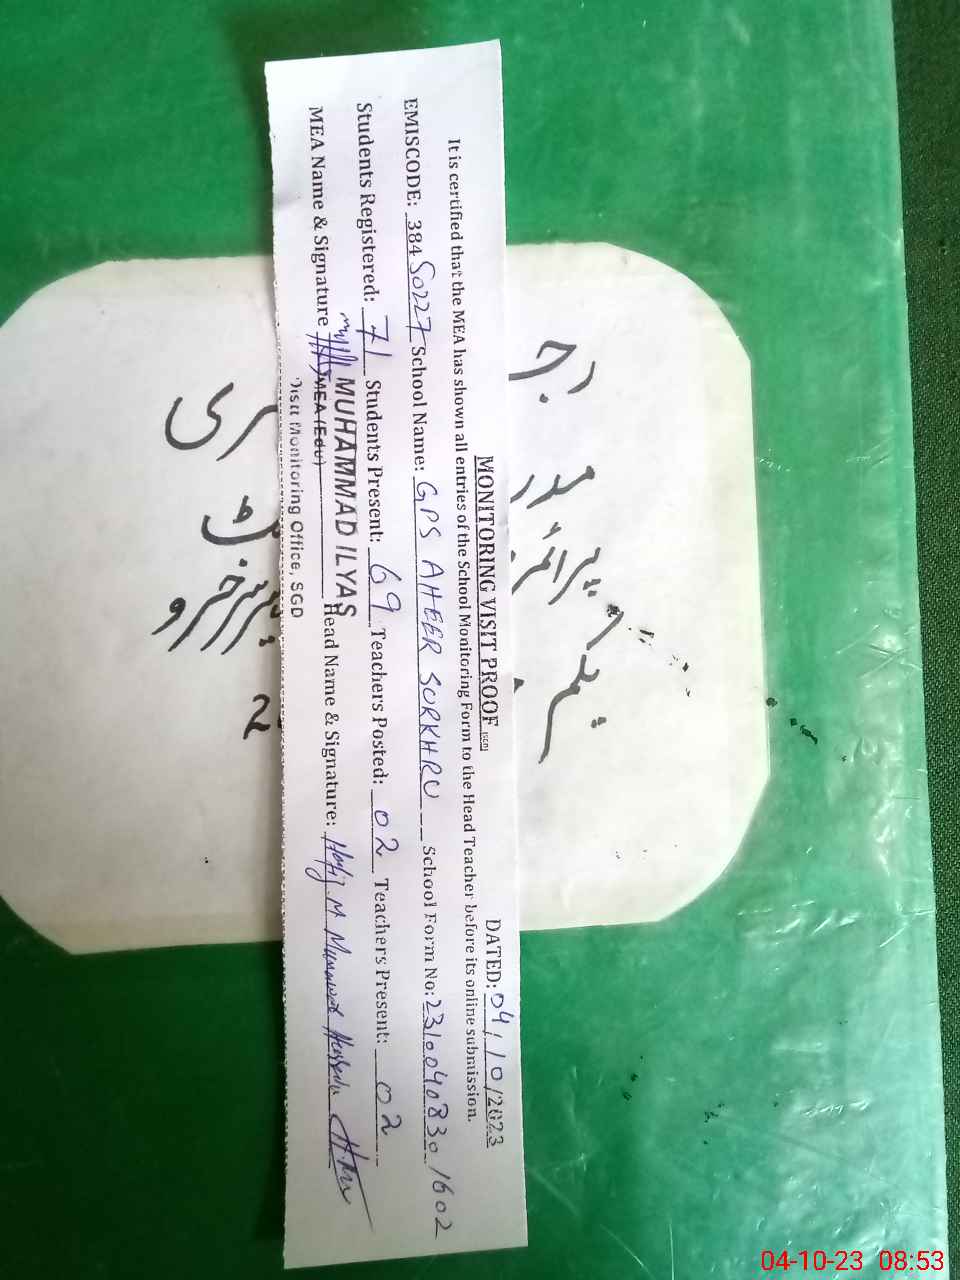 MONITORING VISIT PROOF (SGD) DATED: 04/10/2023
It is certified that the MEA has shown all entries of the School Monitoring Form to the Head Teacher before its online submission.
EMISCODE: 38450227 School Name: GPS AHEER SURKHRU School Form No: 2310040830/1602
Students Registered: 71 Students Present: 69 Teachers Posted: 02 Teachers Present: 02
MEA Name & Signature MUHAMMAD ILYAS Head Name & Signature: Hafiz M
MEA (Edu)
Monitoring Office, SGD
رجـ
ـری
پرائمر
2
04-10-23 08:53